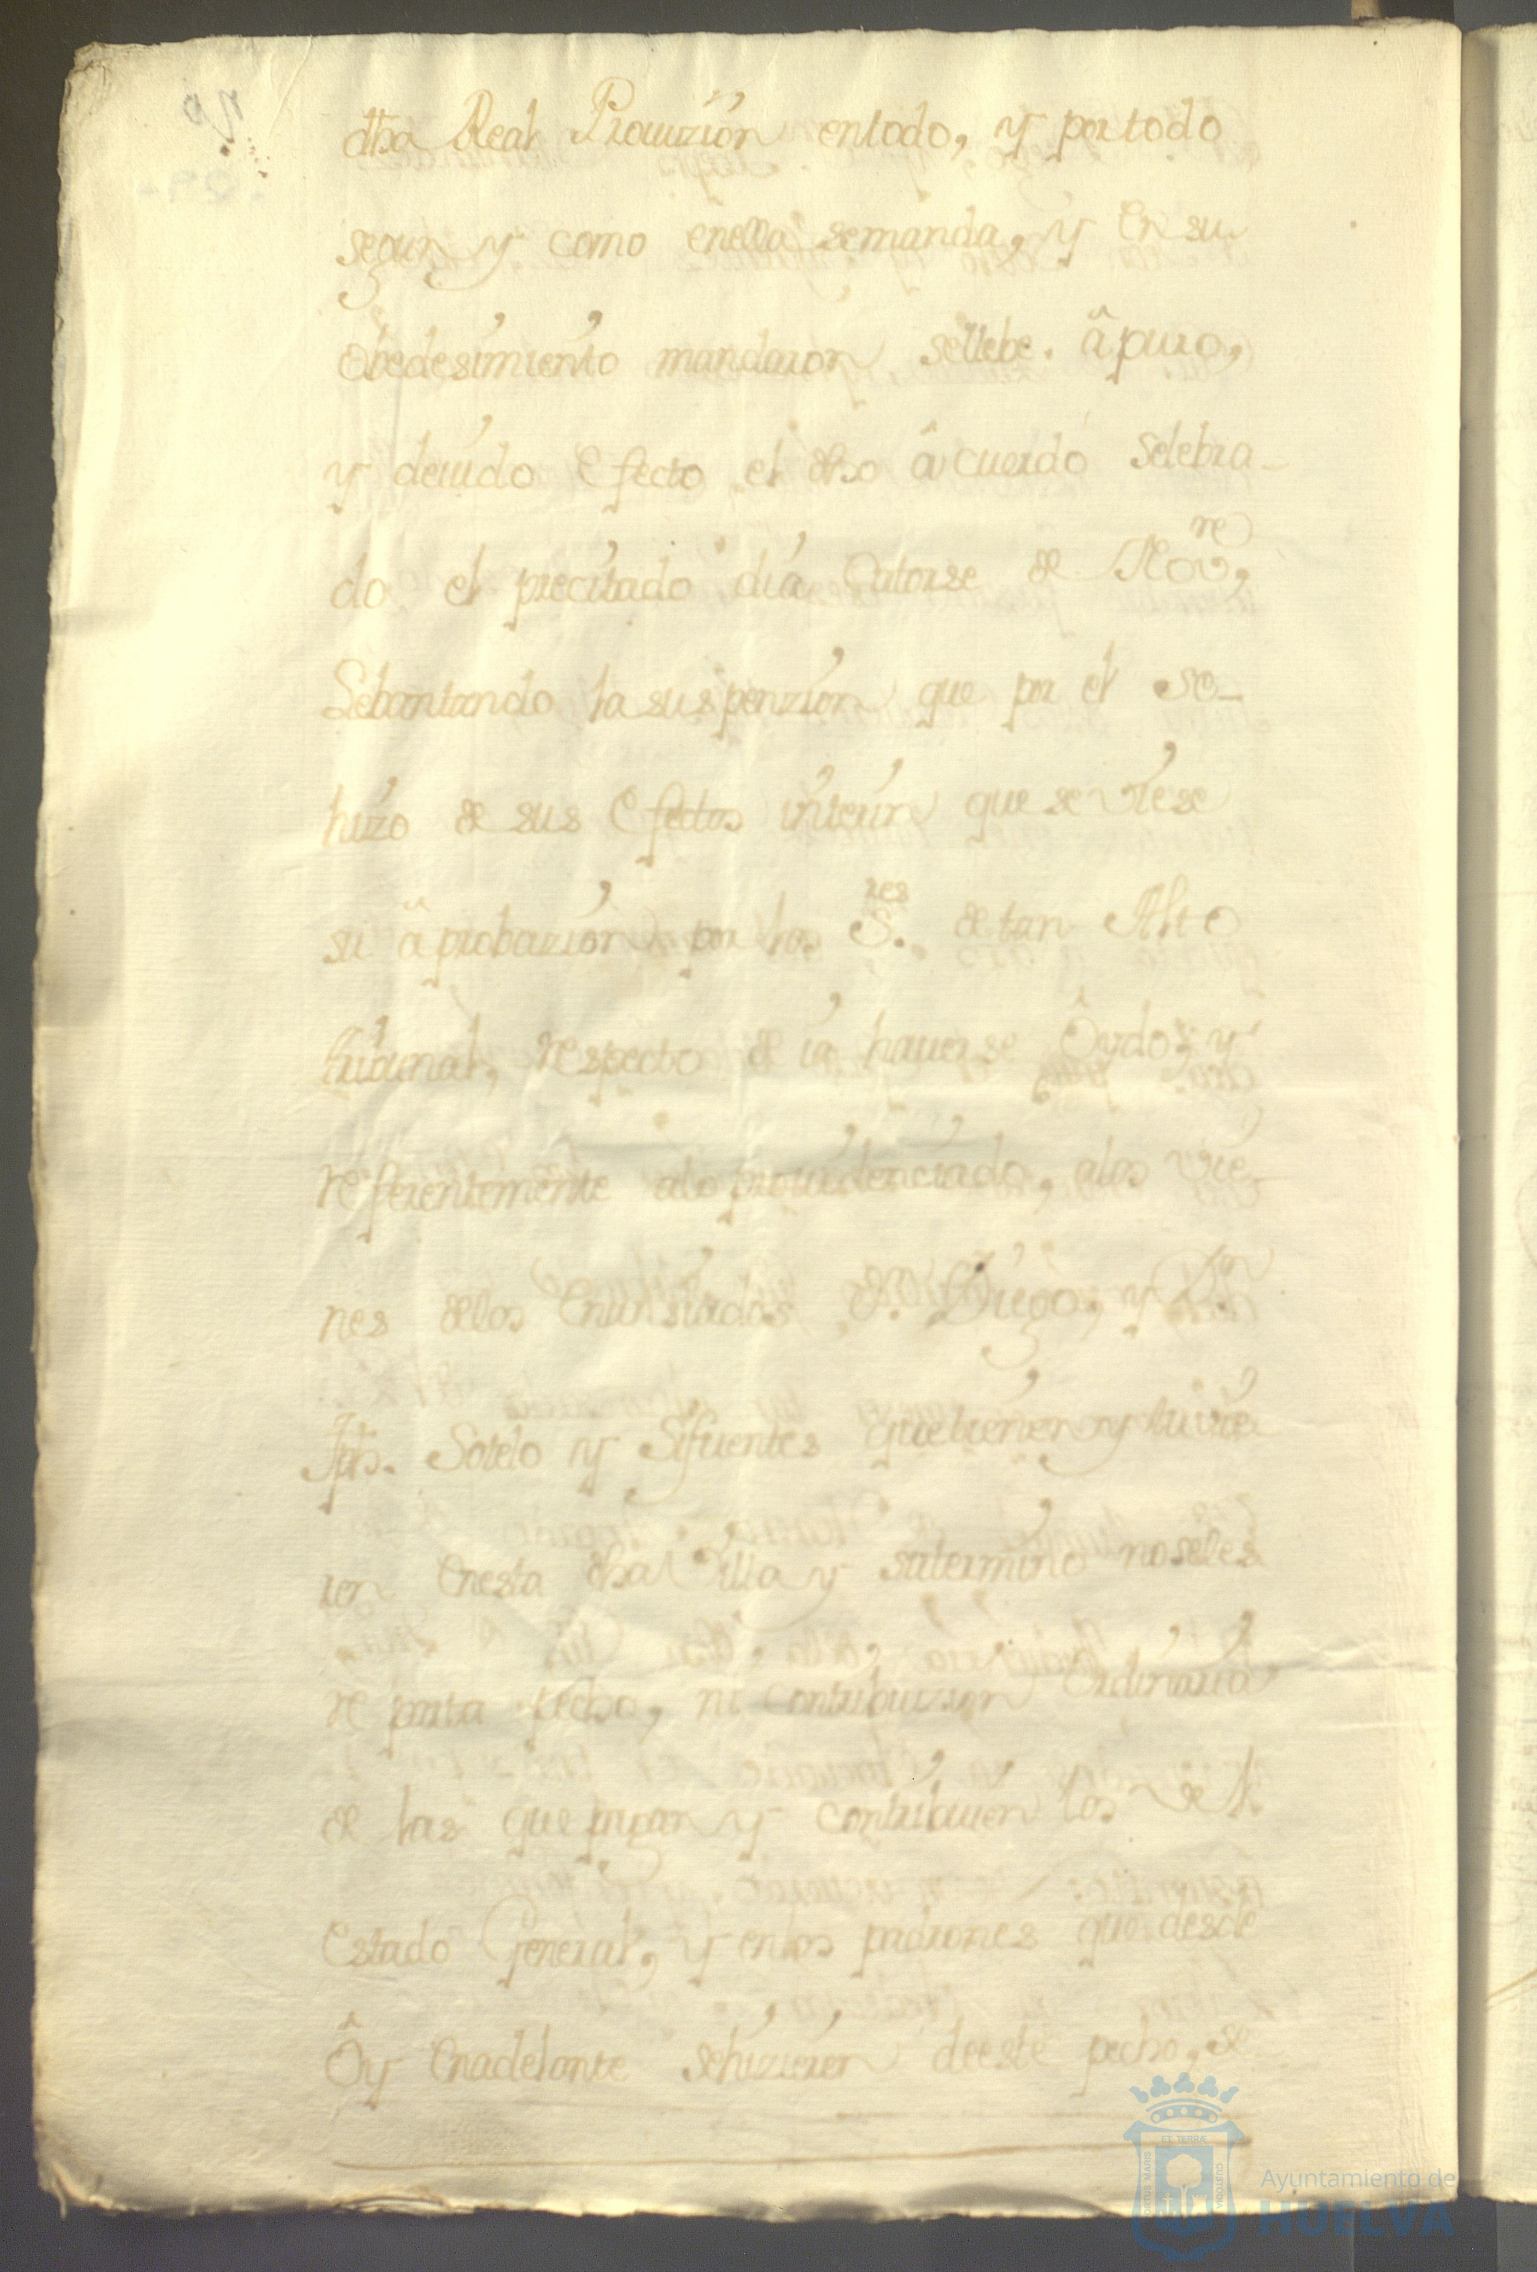 dha Real Prouizion entodo, y portodo
segun y como enella semanda, y En su
Obedesimiento mandaron sellebe. â puro,
y deuido Efecto el dho âcuerdo Selebra-
do el precitado dia Catorse de Nov.re,
Lebantando la suspenzion que por el se-
hizo de sus Efectos interin que se viese
su âprobazion por los S.res de tan Alto
tribunal, respecto de ia hauerse Ôydo, y
referentemente alo prouidenciado, alos vie-
nes delos Enunsiados D.n Diego, y D.n
Jph. Sotelo y Sifuentes que tienen y tuvie-
ren Enesta dha Villa y su termino no seles
reparta pecho, ni Contribuzion Ordinaria
de las que pagan y contribuien los del
Estado General, y enlos padrones que desde
Ôy Enadelante sehizieren de este pecho, se
Ayuntamiento de
HUELVA